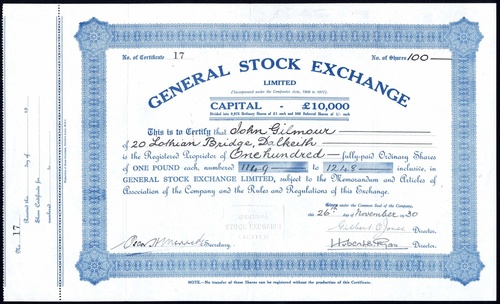 No. of Certificate 17
No. of Shares 100
GENERAL STOCK EXCHANGE
LIMITED
(Incorporated under the Companies Acts, 1908 to 1917).
CAPITAL - £10,000
Divided into 9,975 Ordinary Shares of £1 each and 500 Deferred Shares of 1/- each
This is to Certify that John Gilmour
of 20 Lothian Bridge, Dalkeith
is the Registered Proprietor of One hundred fully-paid Ordinary Shares
of ONE POUND each, numbered 1149 to 1248 inclusive, in
GENERAL STOCK EXCHANGE LIMITED, subject to the Memorandum and Articles of
Association of the Company and the Rules and Regulations of this Exchange.
Given under the Common Seal of the Company,
this 26th November 1930
Director.
Secretary.
Director.
NOTE.—No transfer of these Shares can be registered without the production of this Certificate.
No. 17
Share Certificate for
numbered
day of